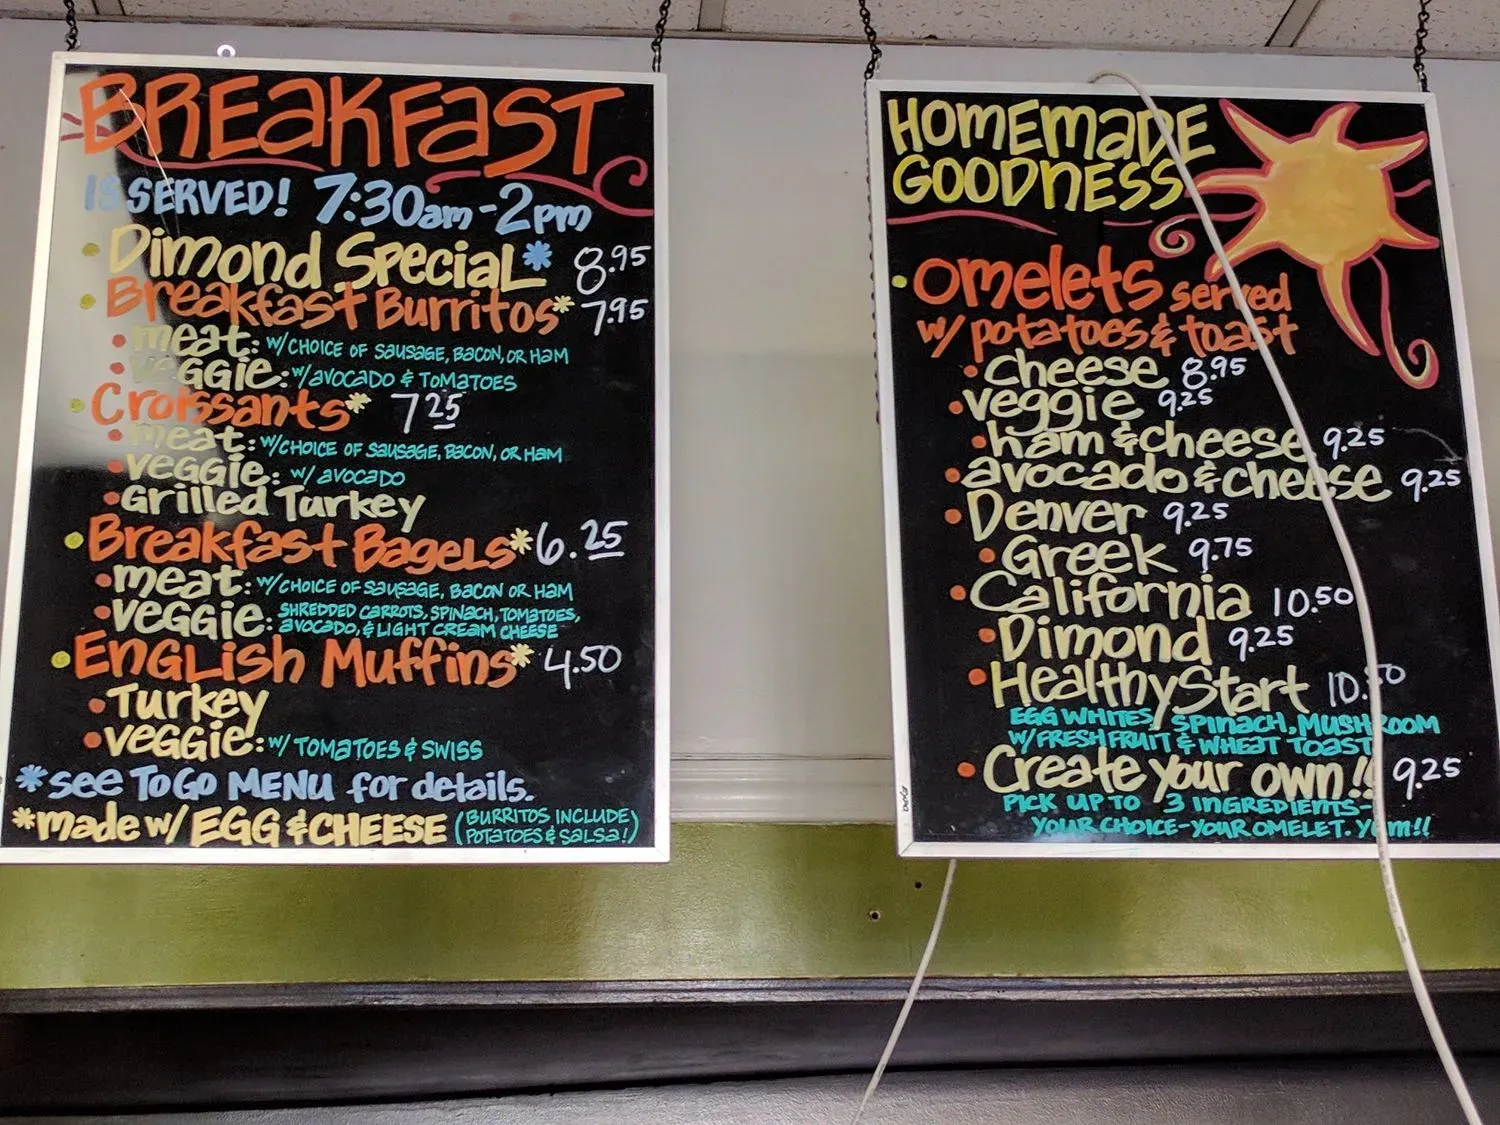 BREAKFAST
IS SERVED! 7:30am-2pm
Dimond Special* 8.95
Breakfast Burritos* 7.95
meat: w/CHOICE OF SAUSAGE, BACON, OR HAM
veggie: w/AVOCADO & TOMATOES
Croissants* 7.25
meat: w/CHOICE OF SAUSAGE, BACON, OR HAM
veggie: w/ AVOCADO
Grilled Turkey
Breakfast Bagels* 6.25
meat: w/CHOICE OF SAUSAGE, BACON OR HAM
veggie: SHREDDED CARROTS, SPINACH, TOMATOES,
AVOCADO, & LIGHT CREAM CHEESE
English Muffins* 4.50
Turkey
veggie: w/ TOMATOES & SWISS
*see TO GO MENU for details.
*made w/ EGG & CHEESE (BURRITOS INCLUDE
POTATOES & SALSA!)
HOMEMADE
GOODNESS
omelets served
w/ potatoes & toast
cheese 8.95
veggie 9.25
ham & cheese 9.25
avocado & cheese 9.25
Denver 9.25
Greek 9.75
California 10.50
Dimond 9.25
Healthy Start 10.50
EGG WHITES, SPINACH, MUSHROOM
W/FRESH FRUIT & WHEAT TOAST
Create your own!! 9.25
PICK UP TO 3 INGREDIENTS-
YOUR CHOICE-YOUR OMELET. Yum!!